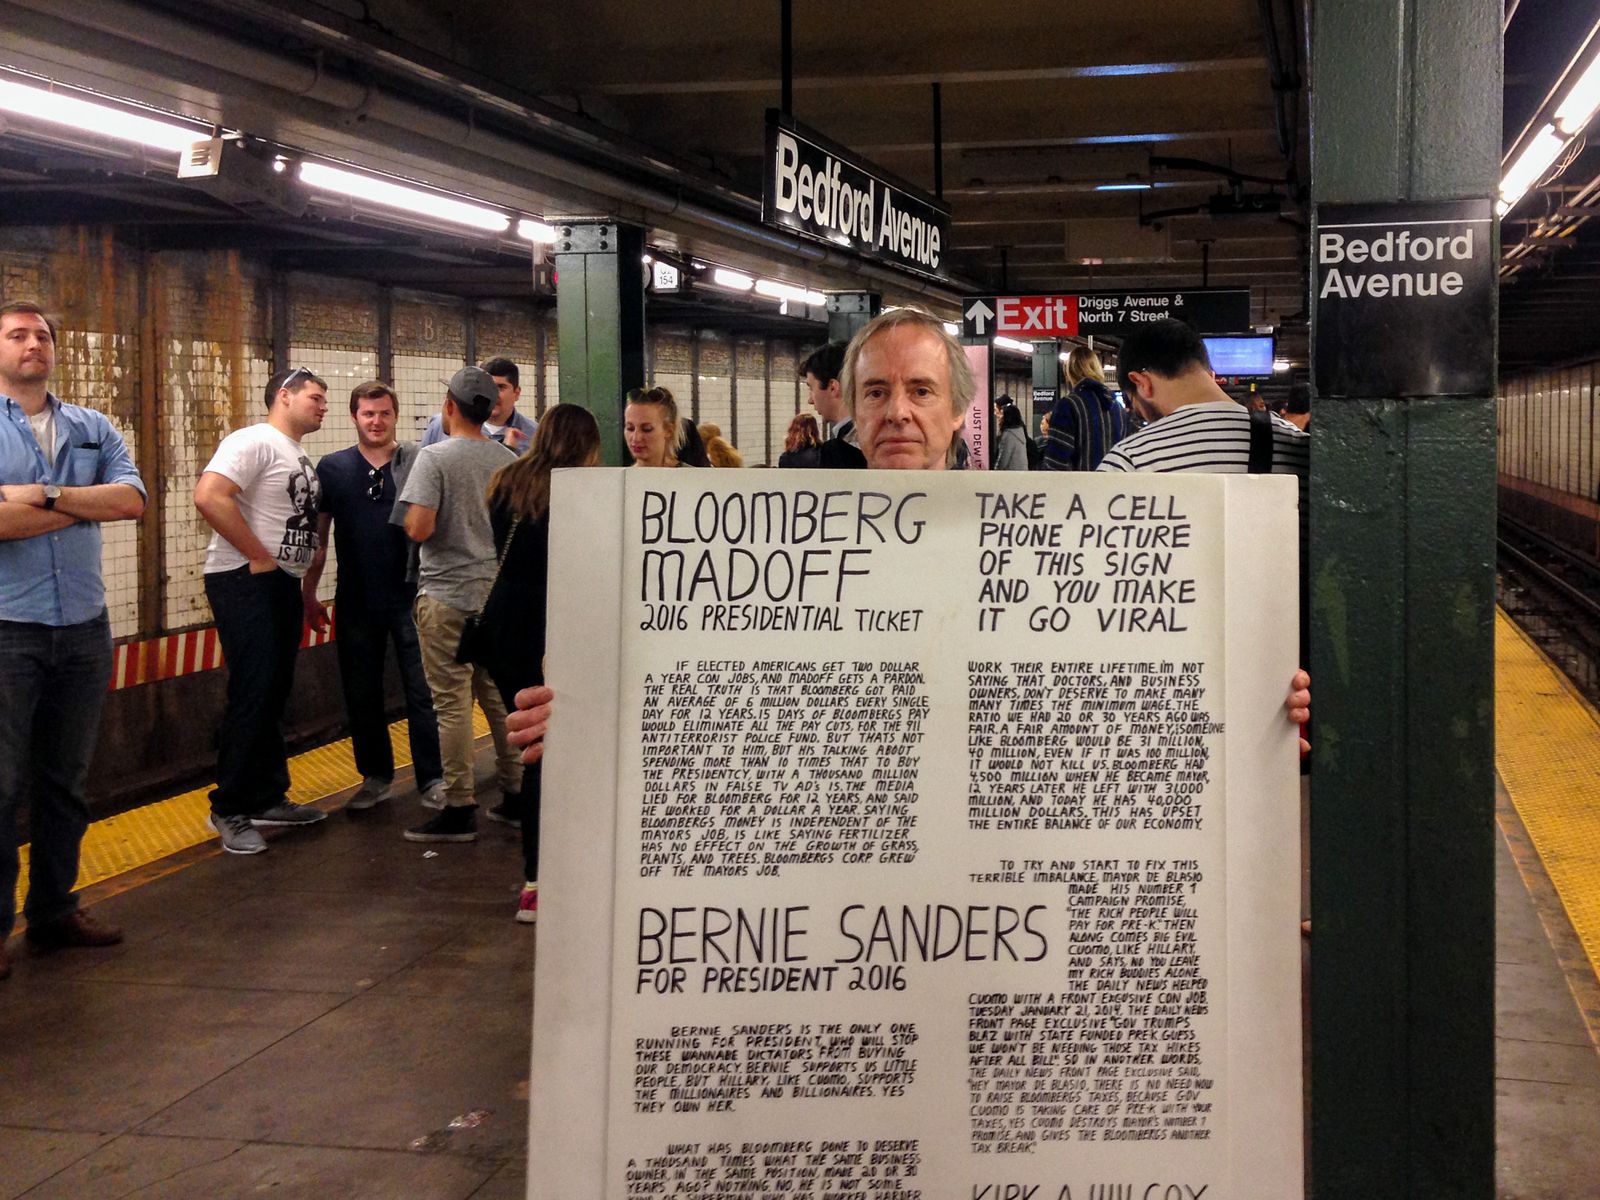 Bedford Avenue
Bedford
Avenue
Exit
Driggs Avenue &
North 7 Street
Bedford
Avenue
JUST DEW IT
B
THE
IS OUT
BLOOMBERG
MADOFF
2016 PRESIDENTIAL TICKET
IF ELECTED AMERICANS GET TWO DOLLAR
A YEAR CON JOBS, AND MADOFF GETS A PARDON.
THE REAL TRUTH IS THAT BLOOMBERG GOT PAID
AN AVERAGE OF 6 MILLION DOLLARS EVERY SINGLE
DAY FOR 12 YEARS. 15 DAYS OF BLOOMBERGS PAY
WOULD ELIMINATE ALL THE PAY CUTS, FOR THE 911
ANTITERRORIST POLICE FUND. BUT THATS NOT
IMPORTANT TO HIM, BUT HIS TALKING ABOUT
SPENDING MORE THAN 10 TIMES THAT TO BUY
THE PRESIDENTCY, WITH A THOUSAND MILLION
DOLLARS IN FALSE TV AD'S IS. THE MEDIA
LIED FOR BLOOMBERG FOR 12 YEARS, AND SAID
HE WORKED FOR A DOLLAR A YEAR. SAYING
BLOOMBERGS MONEY IS INDEPENDENT OF THE
MAYORS JOB, IS LIKE SAYING FERTILIZER
HAS NO EFFECT ON THE GROWTH OF GRASS,
PLANTS, AND TREES. BLOOMBERGS CORP GREW
OFF THE MAYORS JOB.
BERNIE SANDERS
FOR PRESIDENT 2016
BERNIE SANDERS IS THE ONLY ONE
RUNNING FOR PRESIDENT, WHO WILL STOP
THESE WANNABE DICTATORS FROM BUYING
OUR DEMOCRACY. BERNIE SUPPORTS US LITTLE
PEOPLE, BUT HILLARY, LIKE CUOMO, SUPPORTS
THE MILLIONAIRES AND BILLIONAIRES. YES
THEY OWN HER.
WHAT HAS BLOOMBERG DONE TO DESERVE
A THOUSAND TIMES WHAT THE SAME BUSINESS
OWNER, IN THE SAME POSITION, MADE 20 OR 30
YEARS AGO? NOTHING, NO, HE IS NOT SOME
KIND OF SUPERMAN WHO HAS WORKED HARDER
TAKE A CELL
PHONE PICTURE
OF THIS SIGN
AND YOU MAKE
IT GO VIRAL
WORK THEIR ENTIRE LIFETIME. I'M NOT
SAYING THAT, DOCTORS, AND BUSINESS
OWNERS, DON'T DESERVE TO MAKE MANY
MANY TIMES THE MINIMUM WAGE. THE
RATIO WE HAD 20 OR 30 YEARS AGO WAS
FAIR. A FAIR AMOUNT OF MONEY, SOMEONE
LIKE BLOOMBERG WOULD BE 31 MILLION,
40 MILLION, EVEN IF IT WAS 100 MILLION,
IT WOULD NOT KILL US. BLOOMBERG HAD
4,500 MILLION WHEN HE BECAME MAYOR,
12 YEARS LATER HE LEFT WITH 31,000
MILLION, AND TODAY HE HAS 40,000
MILLION DOLLARS. THIS HAS UPSET
THE ENTIRE BALANCE OF OUR ECONOMY.
TO TRY AND START TO FIX THIS
TERRIBLE IMBALANCE, MAYOR DE BLASIO
MADE HIS NUMBER 1
CAMPAIGN PROMISE,
"THE RICH PEOPLE WILL
PAY FOR PRE-K." THEN
ALONG COMES BIG EVIL
CUOMO, LIKE HILLARY,
AND SAYS, NO YOU LEAVE
MY RICH BUDDIES ALONE.
THE DAILY NEWS HELPED
CUOMO WITH A FRONT EXCUSIVE CON JOB.
TUESDAY JANUARY 21, 2014, THE DAILY NEWS
FRONT PAGE EXCLUSIVE "GOV TRUMPS
BLAZ WITH STATE FUNDED PRE-K. GUESS
WE WON'T BE NEEDING THOSE TAX HIKES
AFTER ALL BILL". SO IN ANOTHER WORDS,
THE DAILY NEWS FRONT PAGE EXCLUSIVE SAID,
"HEY MAYOR DE BLASIO, THERE IS NO NEED NOW
TO RAISE BLOOMBERGS TAXES, BECAUSE GOV
CUOMO IS TAKING CARE OF PRE-K WITH YOUR
TAXES, YES CUOMO DESTROYS MAYOR'S NUMBER 1
PROMISE, AND GIVES THE BLOOMBERGS ANOTHER
TAX BREAK".
KIRK A WILCOX